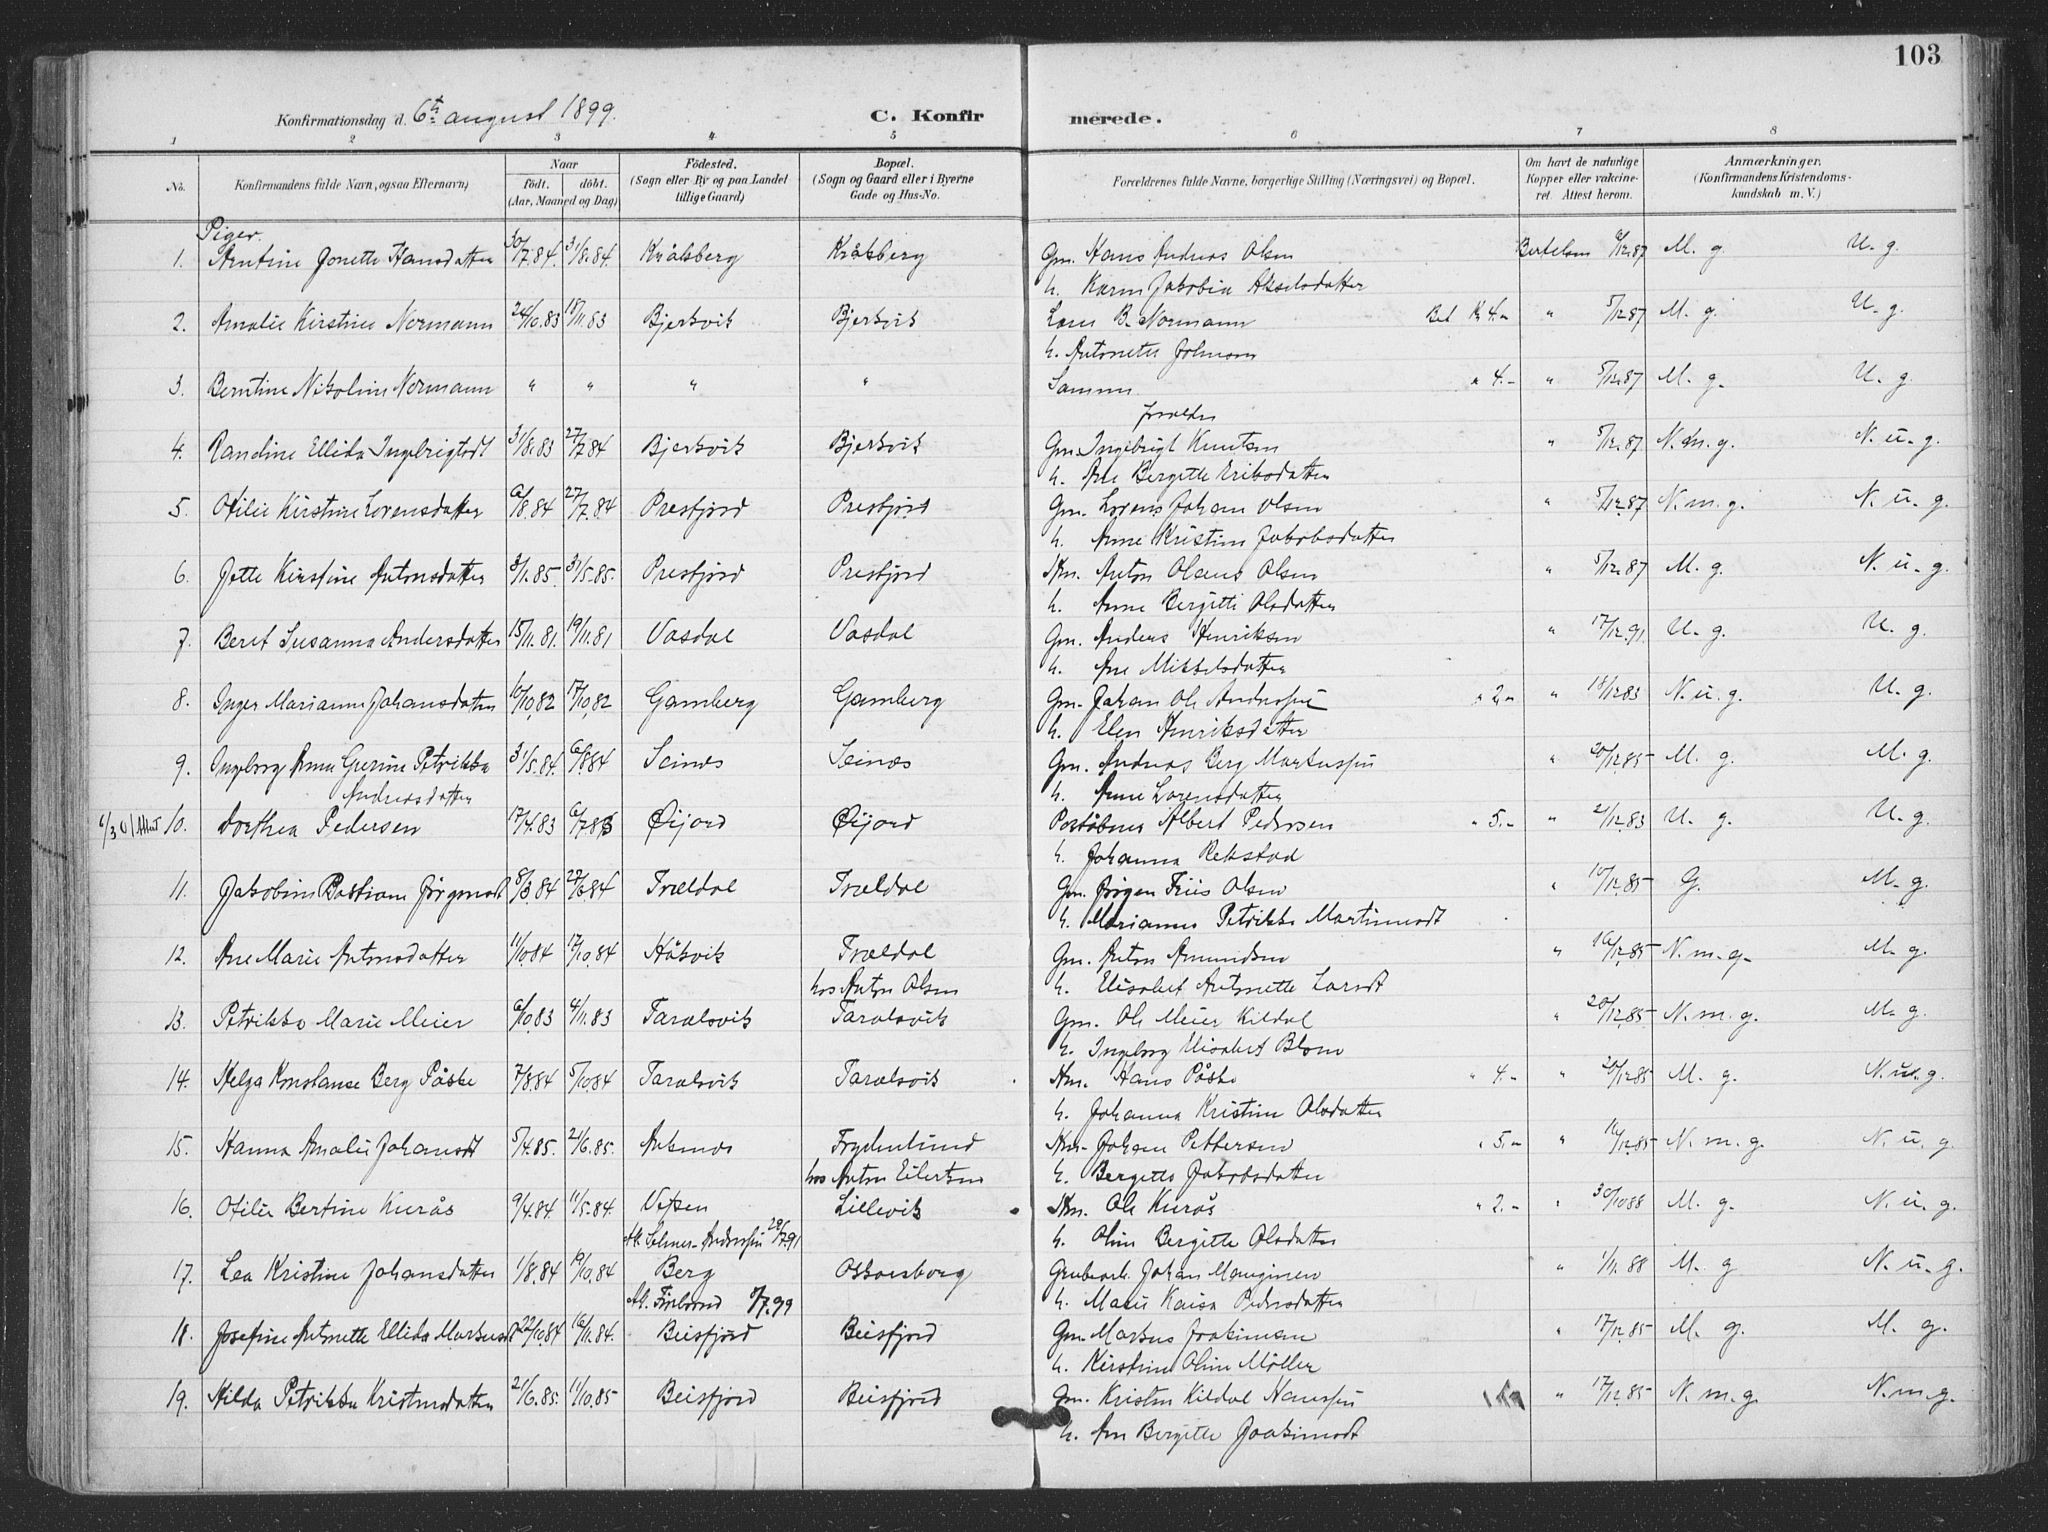 103
Konfirmationsdag d. 6te august 1899. C. Konfirmerede.
1 2 3 4 5 6 7 8
No. Konfirmandens fulde Navn, ogsaa Efternavn) Naar født. døbt. (Aar, Maaned og Dag) Fødested. (Sogn eller By og paa Landet tillige Gaard) Bopæl. (Sogn og Gaard eller i Byerne Gade og Hus-No. Forældrenes fulde Navne, borgerlige Stilling (Næringsvei) og Bopæl. Om havt de naturlige Kopper eller vakcineret. Attest herom. Anmærkninger. (Konfirmandens Kristendomskundskab m. V.)
Piger.
1. Arntine Jonette Hansdatter 30/7.84. 31/8.84. Kråkberg Kråkberg Gm. Hans Andreas Olsen Bertelsen 6/12.87 M. g. U. g.
h. Karen Jakobia Akselsdatter
2. Amalie Kirstine Normann 24/10.83 18/11.83 Bjerkvik Bjerkvik Lars B. Normann Bet Kr 4.- " 5/12.87 M. g. U. g.
h. Antonette Johnsen
3. Berntine Nikoline Normann " " " " Samme " 4.- " 5/12.87 M. g. U. g.
forældre
4. Randine Ellida Ingebrigtsdt 31/8.83 27/7.84 Bjerkvik Bjerkvik Gm. Ingebrigt Knutsen " 5/12.87. N. m. g. N. u. g.
h. Ane Bergitte Eriksdatter
5. Otilie Kirstine Lorensdatter 6/8.84 27/7.84 Presfjord Presfjord Gm. Lorens Johan Olsen " 5/12.87 N. m. g. N. u. g.
h. Anne Kristine Jakobsdatter
6. Jette Kirstine Antonsdatter 3/1.85. 31/5.85. Presfjord Presfjord Km. Anton Olaus Olsen " 5/12.87 M. g. N. u. g.
h. Anne Bergitte Olsdatter
7. Beret Susanna Andersdatter 15/11.81. 19/11.81 Vasdal Vasdal Gm. Anders Henriksen " 17/12.91. U. g. U. g.
h. Ane Mikkelsdatter
8. Inger Marianne Johansdatter 10/10.82 17/10.82 Gamberg Gamberg Gm. Johan Ol. Anderssen " 2.- " 18/12.83 N. u. g. U. g.
h. Elen Henriksdatter
9. Ingeborg Anna Gurine Petrikke 31/5.84. 6/8.84 Seines Seines Gm. Andreas Berg Markussen " 20/12.85- M. g. M. g.
Andreasdatter h. Anne Lorensdatter
10. Dorthea Pedersen 17/4.83 6/7.83 Øijord Øijord Poståbner Albert Pedersen " 5.- " 21/12.83 U. g. U. g.
h. Johanna Rekstad
11. Jakobine Bastiane Jørgensdt 8/3.84 22/6.84 Trældal Trældal Gm. Jørgen Friis Olsen " 10/12.85- G. M. g.
h. Marianne Petrikke Martinusdt
12. Ane Marie Antonsdatter 11/10.84 17/10.84 Håkvik Trældal Gm. Anton Amundsen " 16/12.85- N. m. g. M. g.
hos Anton Olsen h. Elisabet Antonette Larsdt
13. Petrikke Marie Meier 6/10.83 4/11.83 Taraldsvik Taraldsvik Gm. Ole Meier Kildal " 20/12.85- N. m. g. M. g.
h. Ingeborg Elisabet Blom
14. Helga Konstanse Berg Påske 7/8.84 5/10.84 Taralsvik Taralsvik Km. Hans Påske " 4.- " 20/12.85 M. g. N. u. g.
h. Johanna Kristine Olsdatter
15. Hanna Amalie Johansdt 5/4.85. 21/6.85. Ankenes Frydenlund Km. Johan Pettersen " 5.- " 16/12.85- N. m. g. N. u. g.
hos Anton Eilertsen h. Bergitte Jakobsdatter
16. Otilie Bertine Kurås 9/4.84. 11/5.84. Vefsen Lillevik Km. Ole Kurås " 2.- " 30/10.88 M. g. N. u. g.
h. Oline Bergitte Olsdatter
17. Lea Kristine Johansdatter 1/8.84 19/10.84 Berg Oskarsborg Grubearb. Johan " 1/11.88 M. g N. u. g.
h. Marie Kaisa Pedersdatter
18. Josefine Antonette Ellida Markusdt 22/10.84 16/11.84. Beisfjord Beisfjord Gm. Markus Joakimsen " 17/12.85- M. g. M. g.
h. Kirstine Oline Møller
19. Hilda Petrikke Kristensdatter 21/6.85. 11/10.85- Beisfjord Beisfjord Gm. Kristen Kildal Hanssen " 17/12.85- N. m. g. N. m. g.
h. Ane Bergitte Joakimsdt